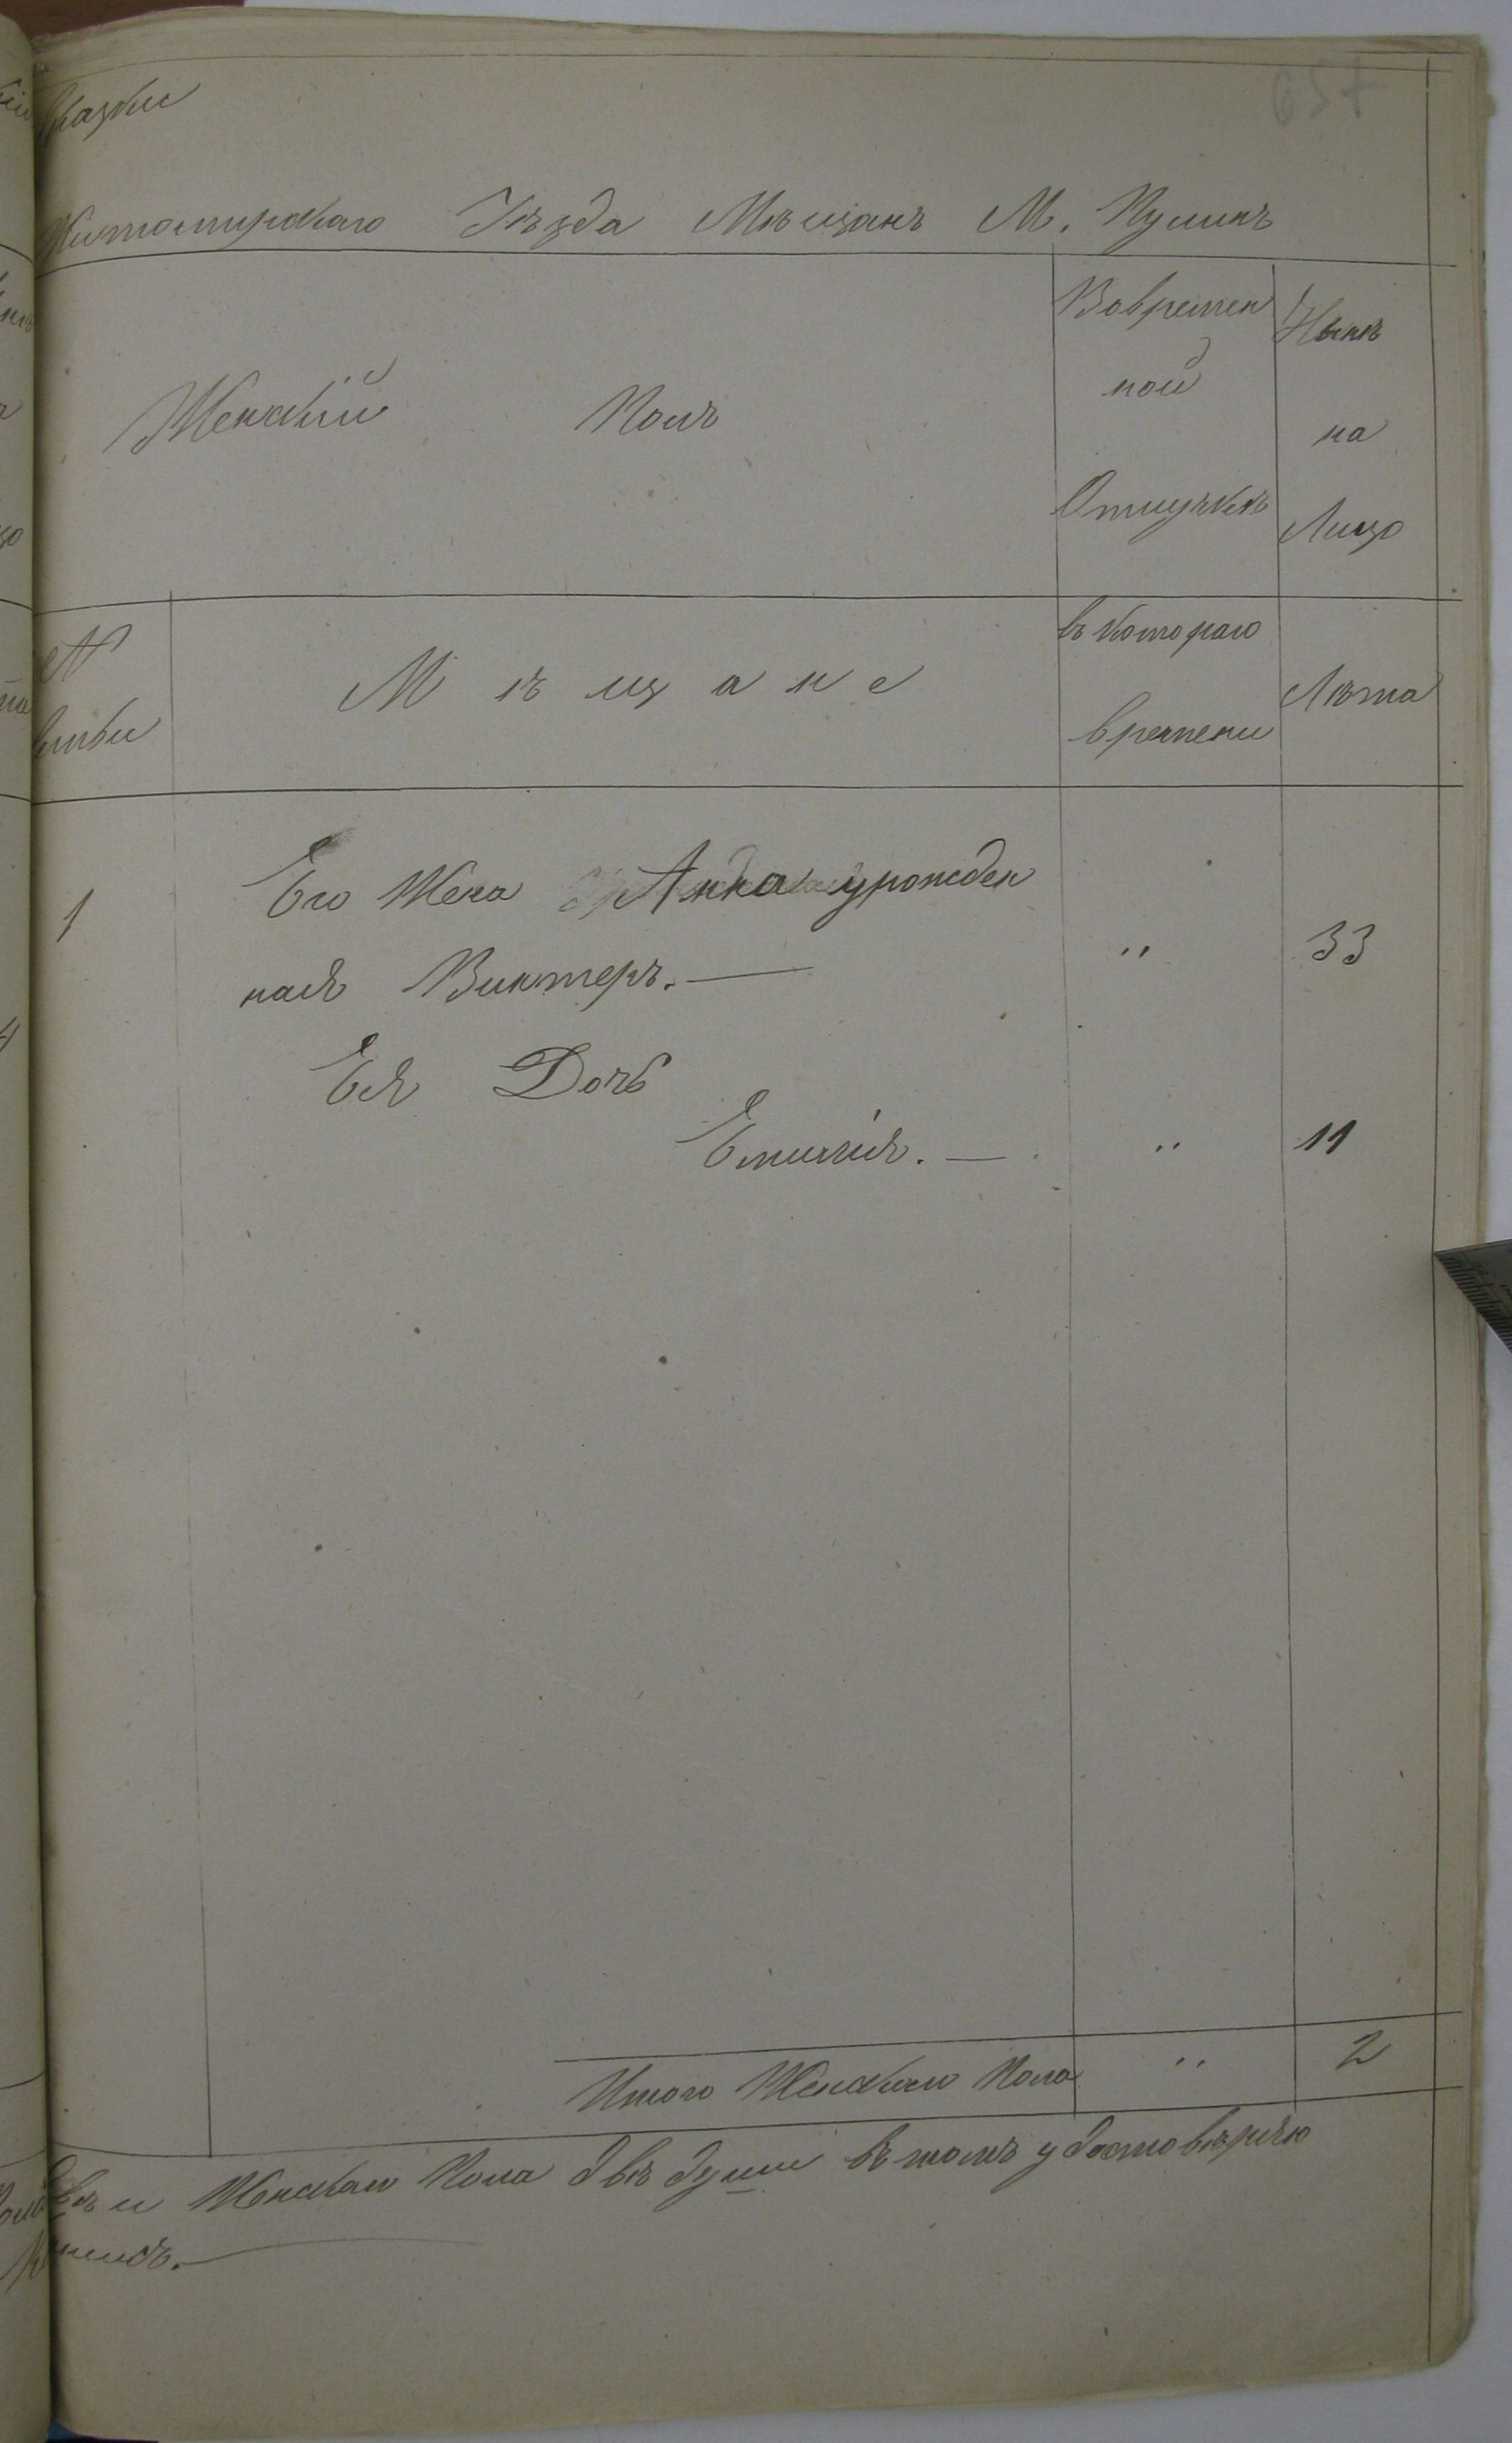 сказки
Житомирскаго Уѣзда Мѣщанъ М. Пулинъ
Женскій Полъ
Вовремен
ной
Отлучкѣ
Нынѣ
на
Лицо
№
семьи
Мѣщане
въ котораго
времени
Лѣта
1 Его Жена Анна урожден
ная Винтеръ. — " 33
Ея Дочь
Емилія. — " 11
Итого Женскаго Пола " 2
и Женскаго Пола двѣ души въ томъ удостовѣряю